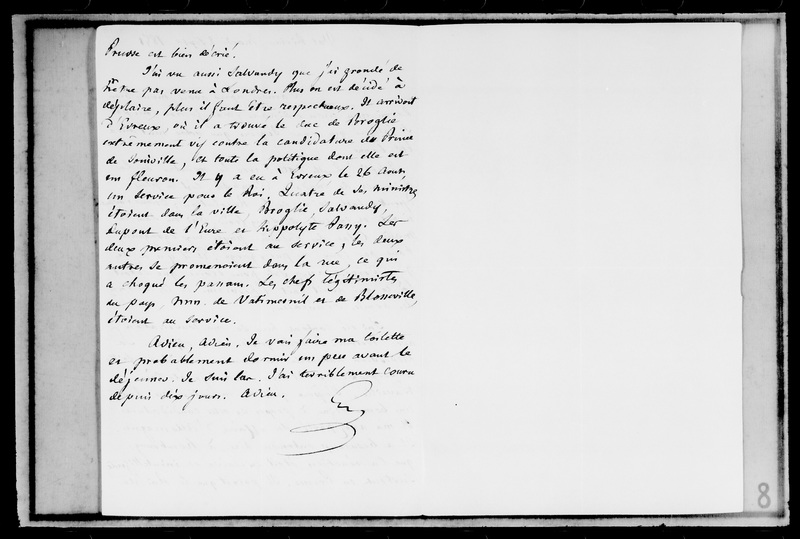 Prusse est bien décrié.
J'ai vu aussi Salvandy que j'ai grondé de
n'être pas venu à Londres. Plus on est décidé à
déplaire, plus il faut être respectueux. Il arrivoit
d'Evreux, où il a trouvé le Duc de Broglie
extrêmement vif contre la candidature du Prince
de Joinville, et toute la politique dont elle est
un fleuron. Il y a eu à Evreux le 26 Août,
un service pour le Roi. Quatre de ses ministres
étoient dans la ville, Broglie, Salvandy,
Dupont de l'Eure et Hippolyte Passy. Les
deux premiers étoient au service, les deux
autres se promenoient dans la rue, ce qui
a choqué les passans. Les chefs légitimistes
du pays, Mm. de Vatimesnil et de Blosseville,
étoient au service.
Adieu, adieu. Je vais faire ma toilette
et probablement dormir un peu avant le
déjeuner. Je suis las. J'ai terriblement couru
depuis dix jours. Adieu.
8